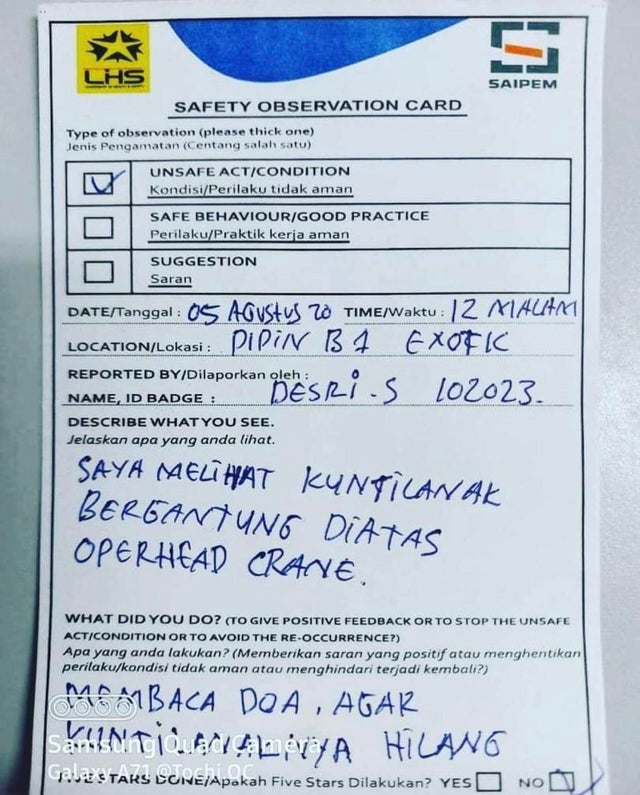 LHS
SAIPEM
SAFETY OBSERVATION CARD
Type of observation (please thick one)
Jenis Pengamatan (Centang salah satu)
UNSAFE ACT/CONDITION
Kondisi/Perilaku tidak aman
SAFE BEHAVIOUR/GOOD PRACTICE
Perilaku/Praktik kerja aman
SUGGESTION
Saran
DATE/Tanggal : 05 AGUSTUS 20 TIME/Waktu : 12 MALAM
LOCATION/Lokasi : PIPIN B1 EXOTIC
REPORTED BY/Dilaporkan oleh :
NAME, ID BADGE : DESRI.S 102023.
DESCRIBE WHAT YOU SEE.
Jelaskan apa yang anda lihat.
SAYA MELIHAT KUNTILANAK
BERGANTUNG DIATAS
OPERHEAD CRANE.
WHAT DID YOU DO? (TO GIVE POSITIVE FEEDBACK OR TO STOP THE UNSAFE
ACT/CONDITION OR TO AVOID THE RE-OCCURRENCE?)
Apa yang anda lakukan? (Memberikan saran yang positif atau menghentikan
perilaku/kondisi tidak aman atau menghindari terjadi kembali?)
MEMBACA DOA, AGAR
HILANG
Samsung Quad Camera
Galaxy A71 @Tochi.OC
FIVE STARS DONE/Apakah Five Stars Dilakukan? YES NO